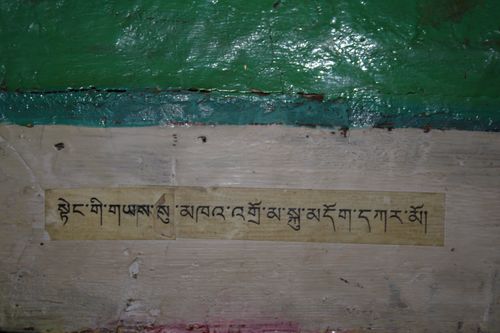 སྟེང་གི་གཡས་སུ་མཁའ་འགྲོ་མ་སྐུ་མདོག་དཀར་མོ།